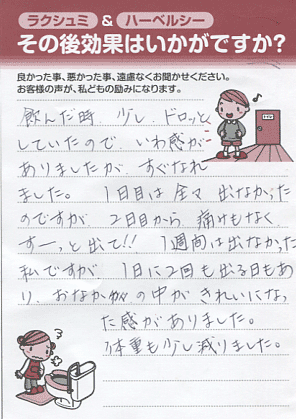 ラクシュミ & ハーベルシー
その後効果はいかがですか?
良かった事、悪かった事、遠慮なくお聞かせください。
お客様の声が、私どもの励みになります。
飲んだ時、少し、ドロッと
していたので、いわ感が
ありましたが、すぐなれ
ました。1日目は全々出なかった
のですが、2日目から、痛けもなく
すーっと出て!! 1週間は出なかった
私ですが、1日に2回も出る日もあ
り、おなかの中がきれいになっ
た感がありました。
体重も少し減りました。